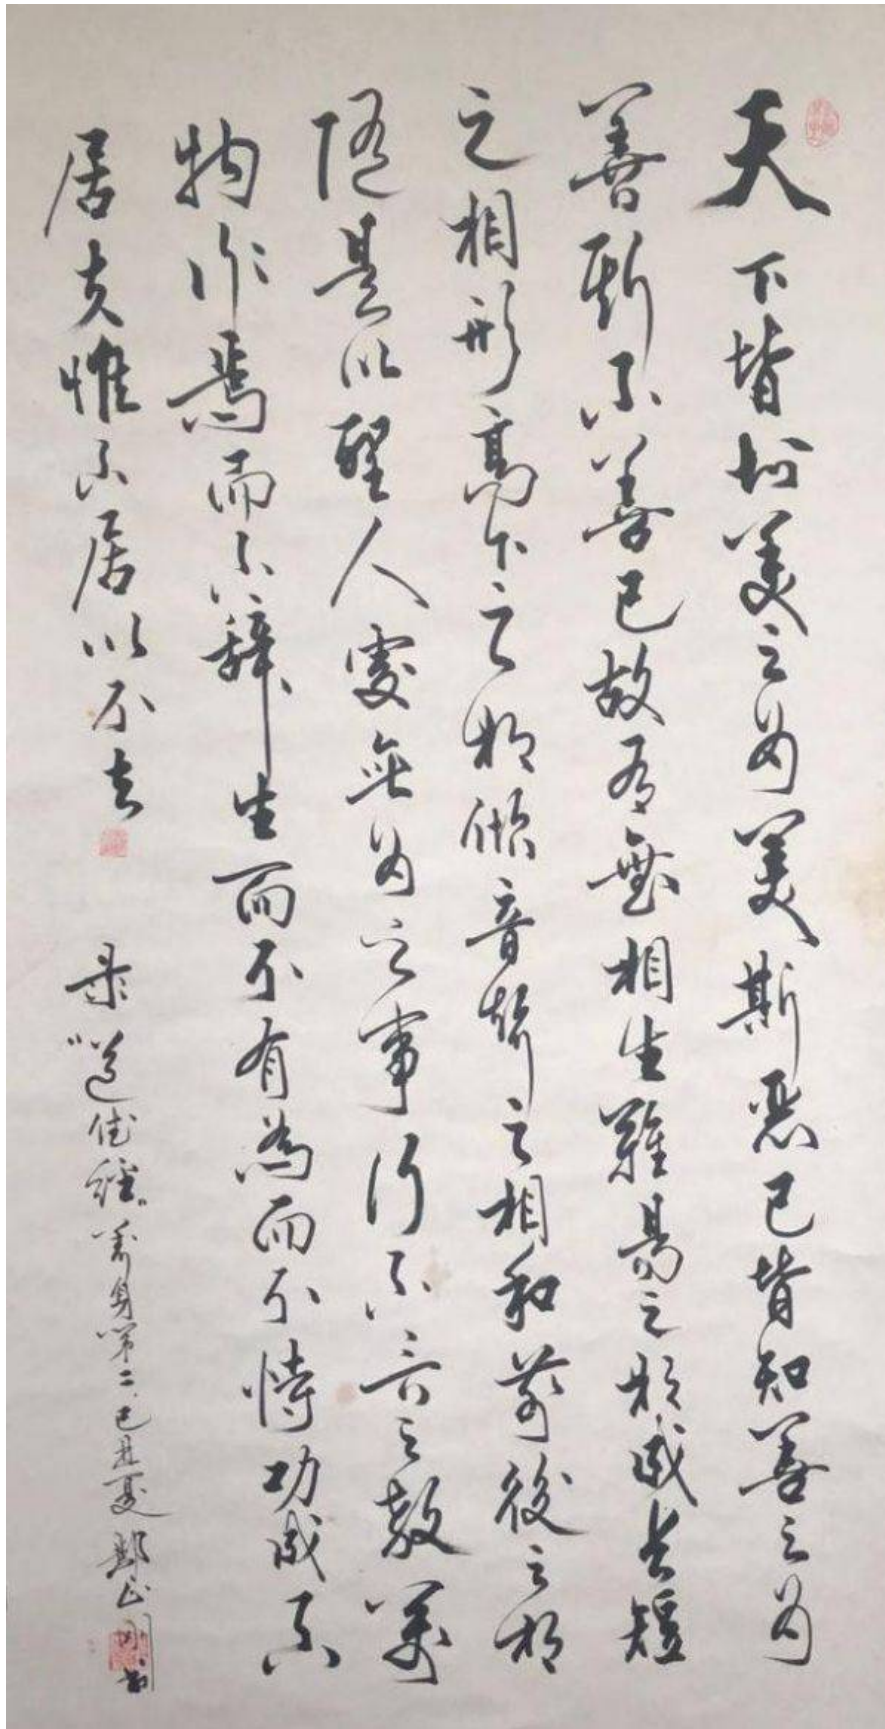 天下皆知美之为美斯恶已皆知善之为
善斯不善已故有無相生難易之相成长短
之相形高下之相傾音聲之相和前後之相
随是以聖人處無为之事行不言之教萬
物作焉而不辭生而不有為而不恃功成不
居夫惟不居以不去
录“道德经”養身第二、己丑夏 鄭正刚书